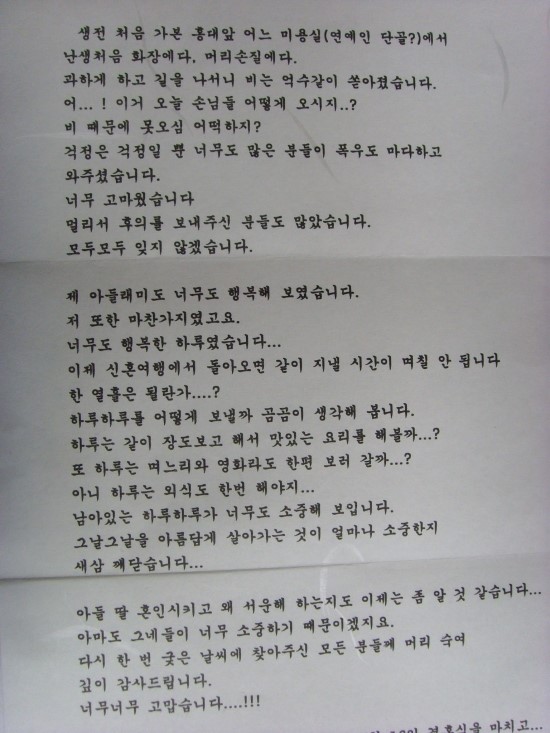 생전 처음 가본 홍대앞 어느 미용실(연예인 단골?)에서
난생처음 화장에다, 머리손질에다.
과하게 하고 길을 나서니 비는 억수같이 쏟아졌습니다.
어... ! 이거 오늘 손님들 어떻게 오시지..?
비 때문에 못오심 어떡하지?
걱정은 걱정일 뿐 너무도 많은 분들이 폭우도 마다하고
와주셨습니다.
너무 고마웠습니다
멀리서 후의를 보내주신 분들도 많았습니다.
모두모두 잊지 않겠습니다.
제 아들래미도 너무도 행복해 보였습니다.
저 또한 마찬가지였고요.
너무도 행복한 하루였습니다...
이제 신혼여행에서 돌아오면 같이 지낼 시간이 며칠 안 됩니다
한 열흘은 될란가....?
하루하루를 어떻게 보낼까 곰곰이 생각해 봅니다.
하루는 같이 장도보고 해서 맛있는 요리를 해볼까...?
또 하루는 며느리와 영화라도 한편 보러 갈까...?
아니 하루는 외식도 한번 해야지...
남아있는 하루하루가 너무도 소중해 보입니다.
그날그날을 아름답게 살아가는 것이 얼마나 소중한지
새삼 깨닫습니다...
아들 딸 혼인시키고 왜 서운해 하는지도 이제는 좀 알 것 같습니다...
아마도 그네들이 너무 소중하기 때문이겠지요.
다시 한 번 궂은 날씨에 찾아주신 모든 분들께 머리 숙여
깊이 감사드립니다.
너무너무 고맙습니다....!!!
결혼식을 마치고...